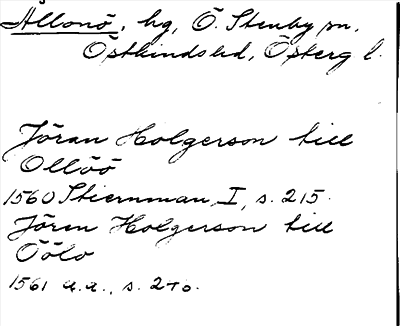 Ållonö, hg, Ö. Stenby sn,
Östkinds hd, Österg l.
Jöran Holgerson till
Ollöö
1560 Stiernman I, s. 215.
Jören Holgerson till
Öölo
1561 a.a., s. 240.